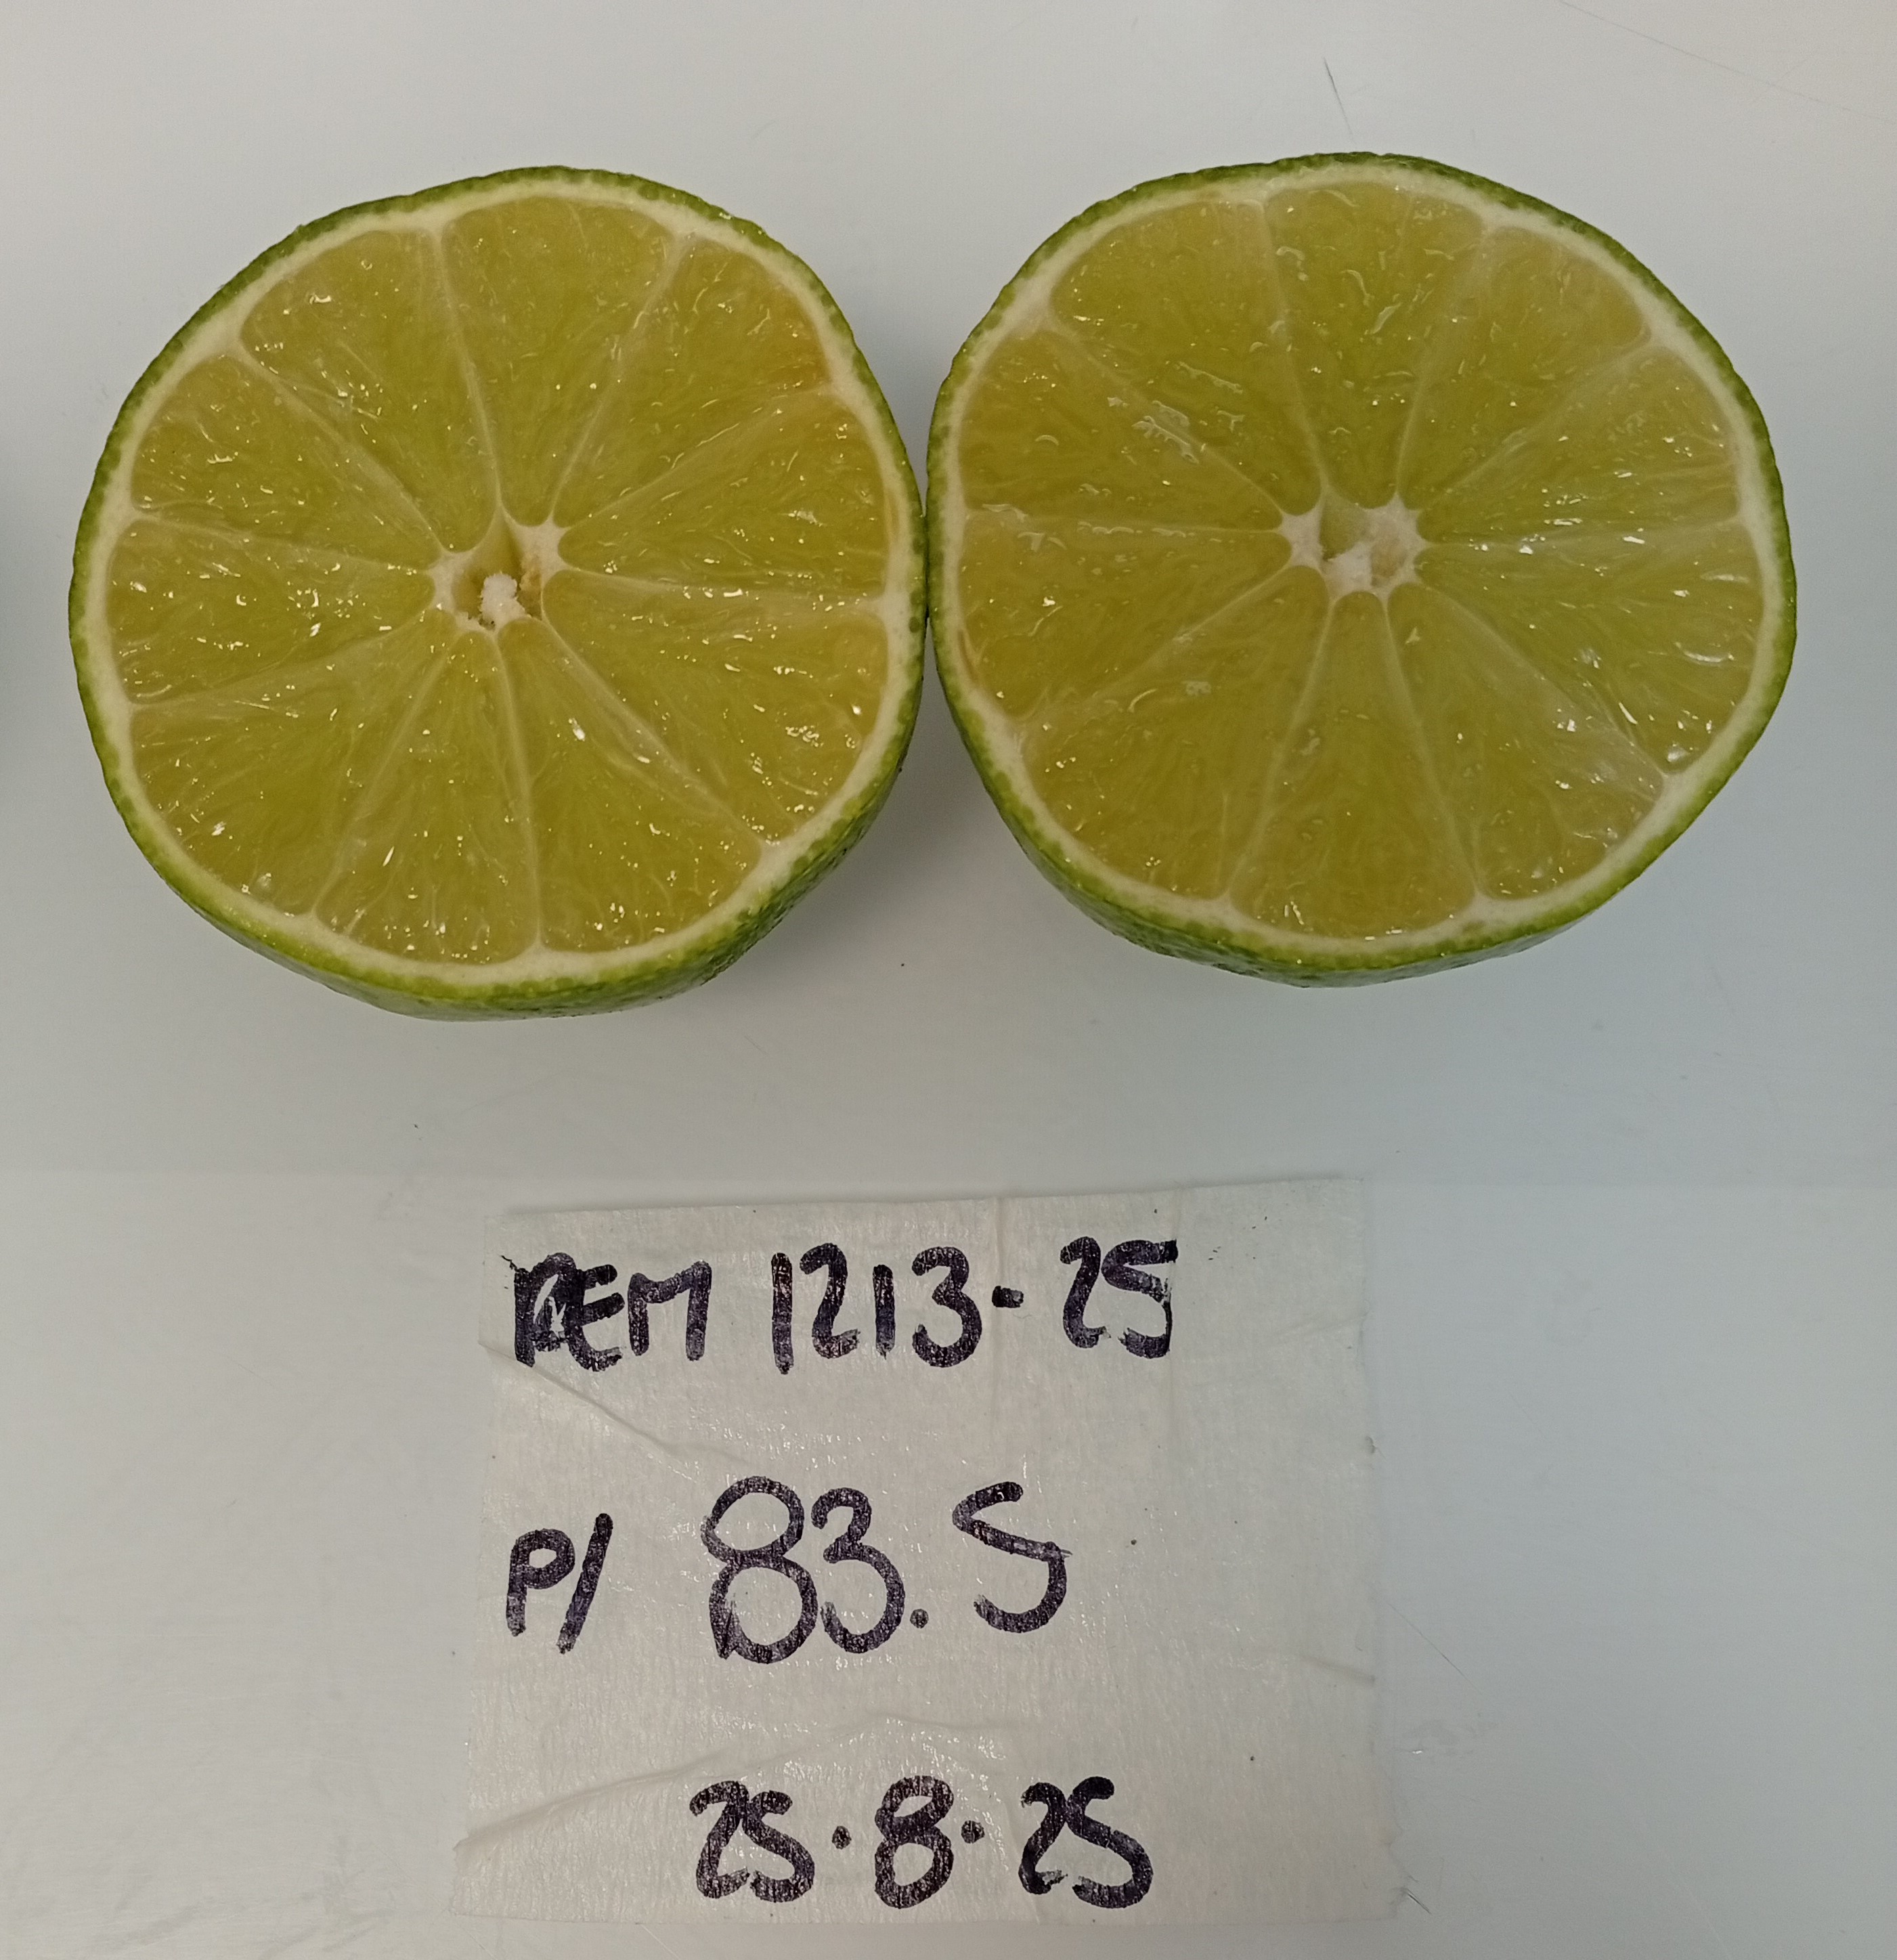 REM 1213-25
P/ 83.5
25.8.25